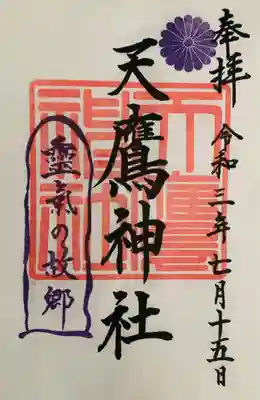 奉拝
令和三年七月十五日
天鷹神社
靈氣の故郷